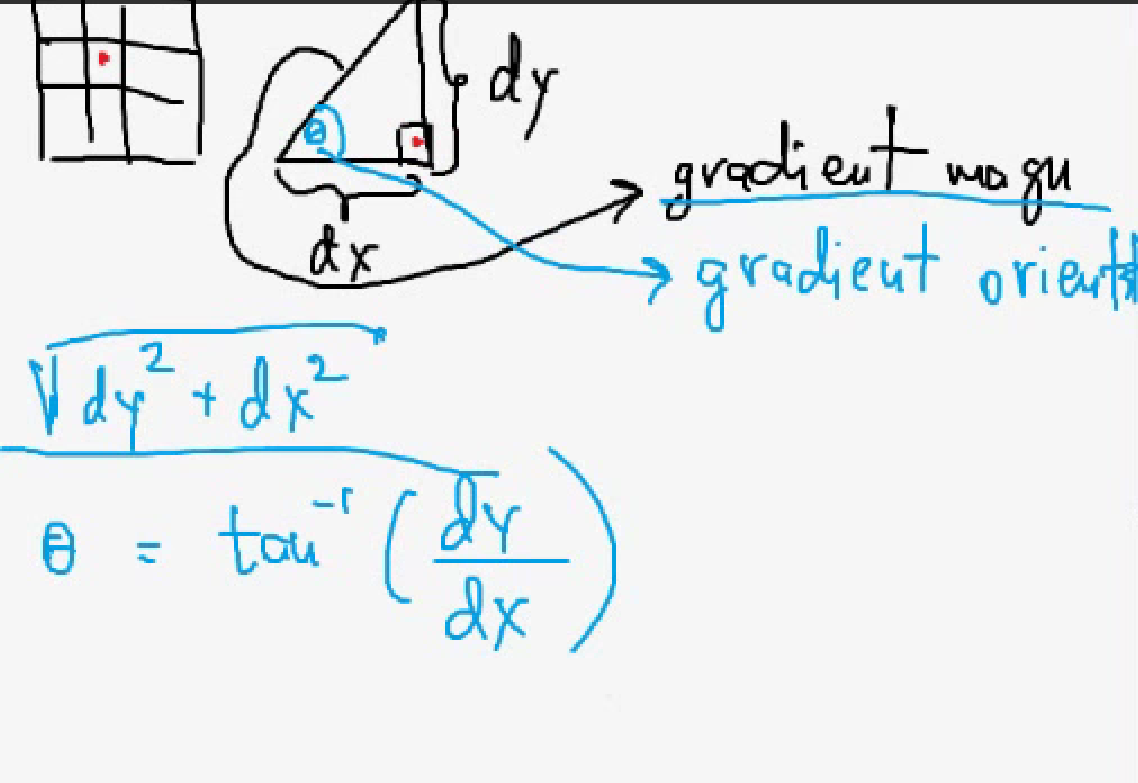 dy
θ
gradient magn
dx
gradient orient
√dy² + dx²
θ = tan⁻¹ (dy/dx)